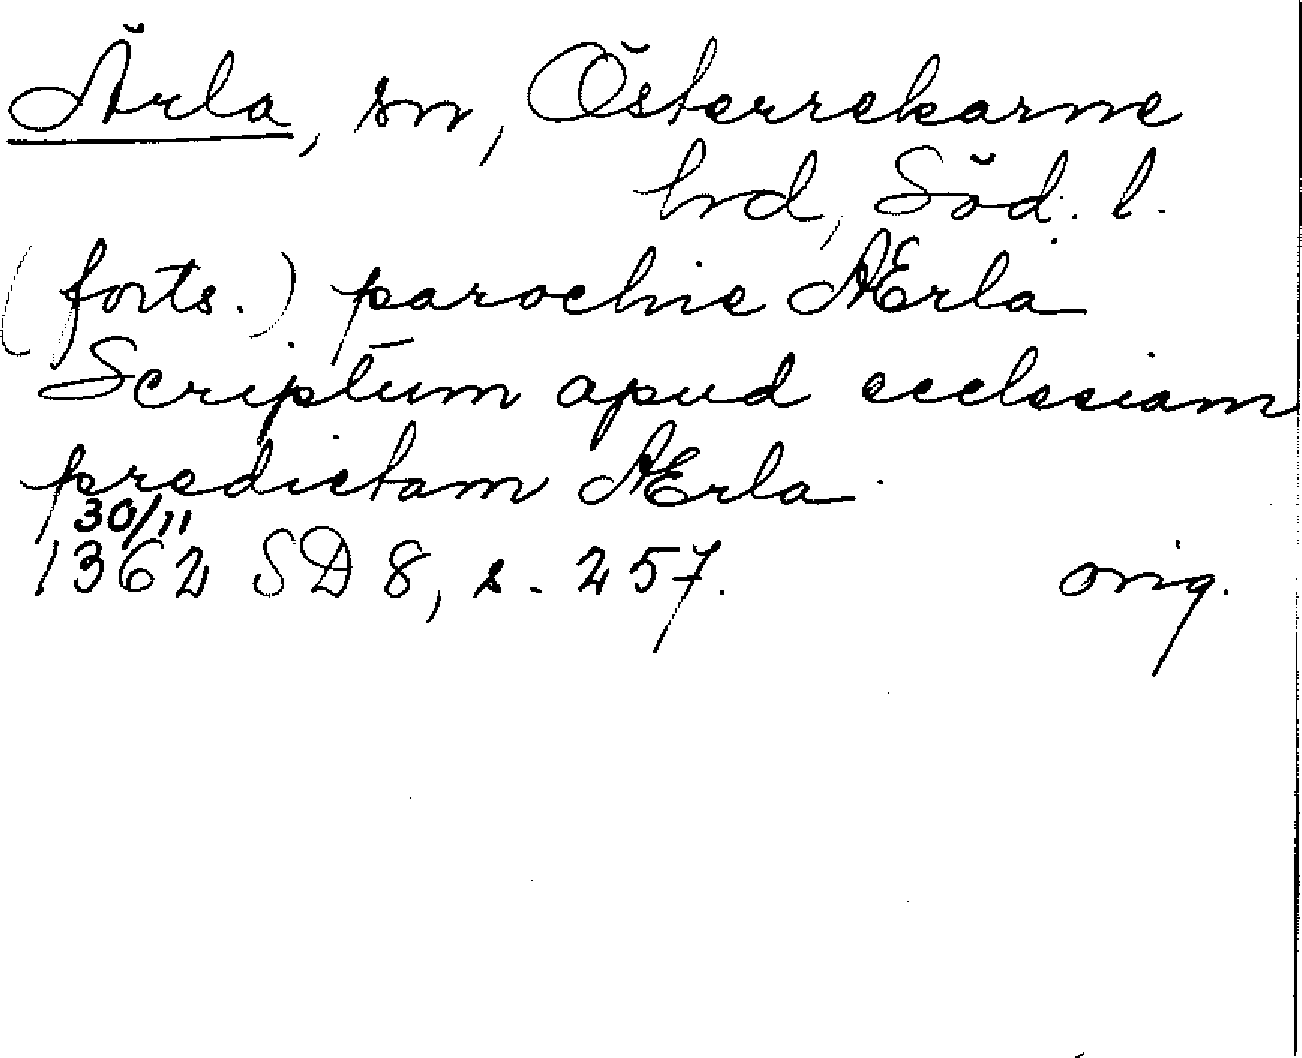 Ärla, sn, Österrekarne
hrd, Söd. l.
(forts.) parochie Ærla
Scriptum apud ecclesiam
predictam Ærla
30/11
1362 SD 8, s. 257. orig.